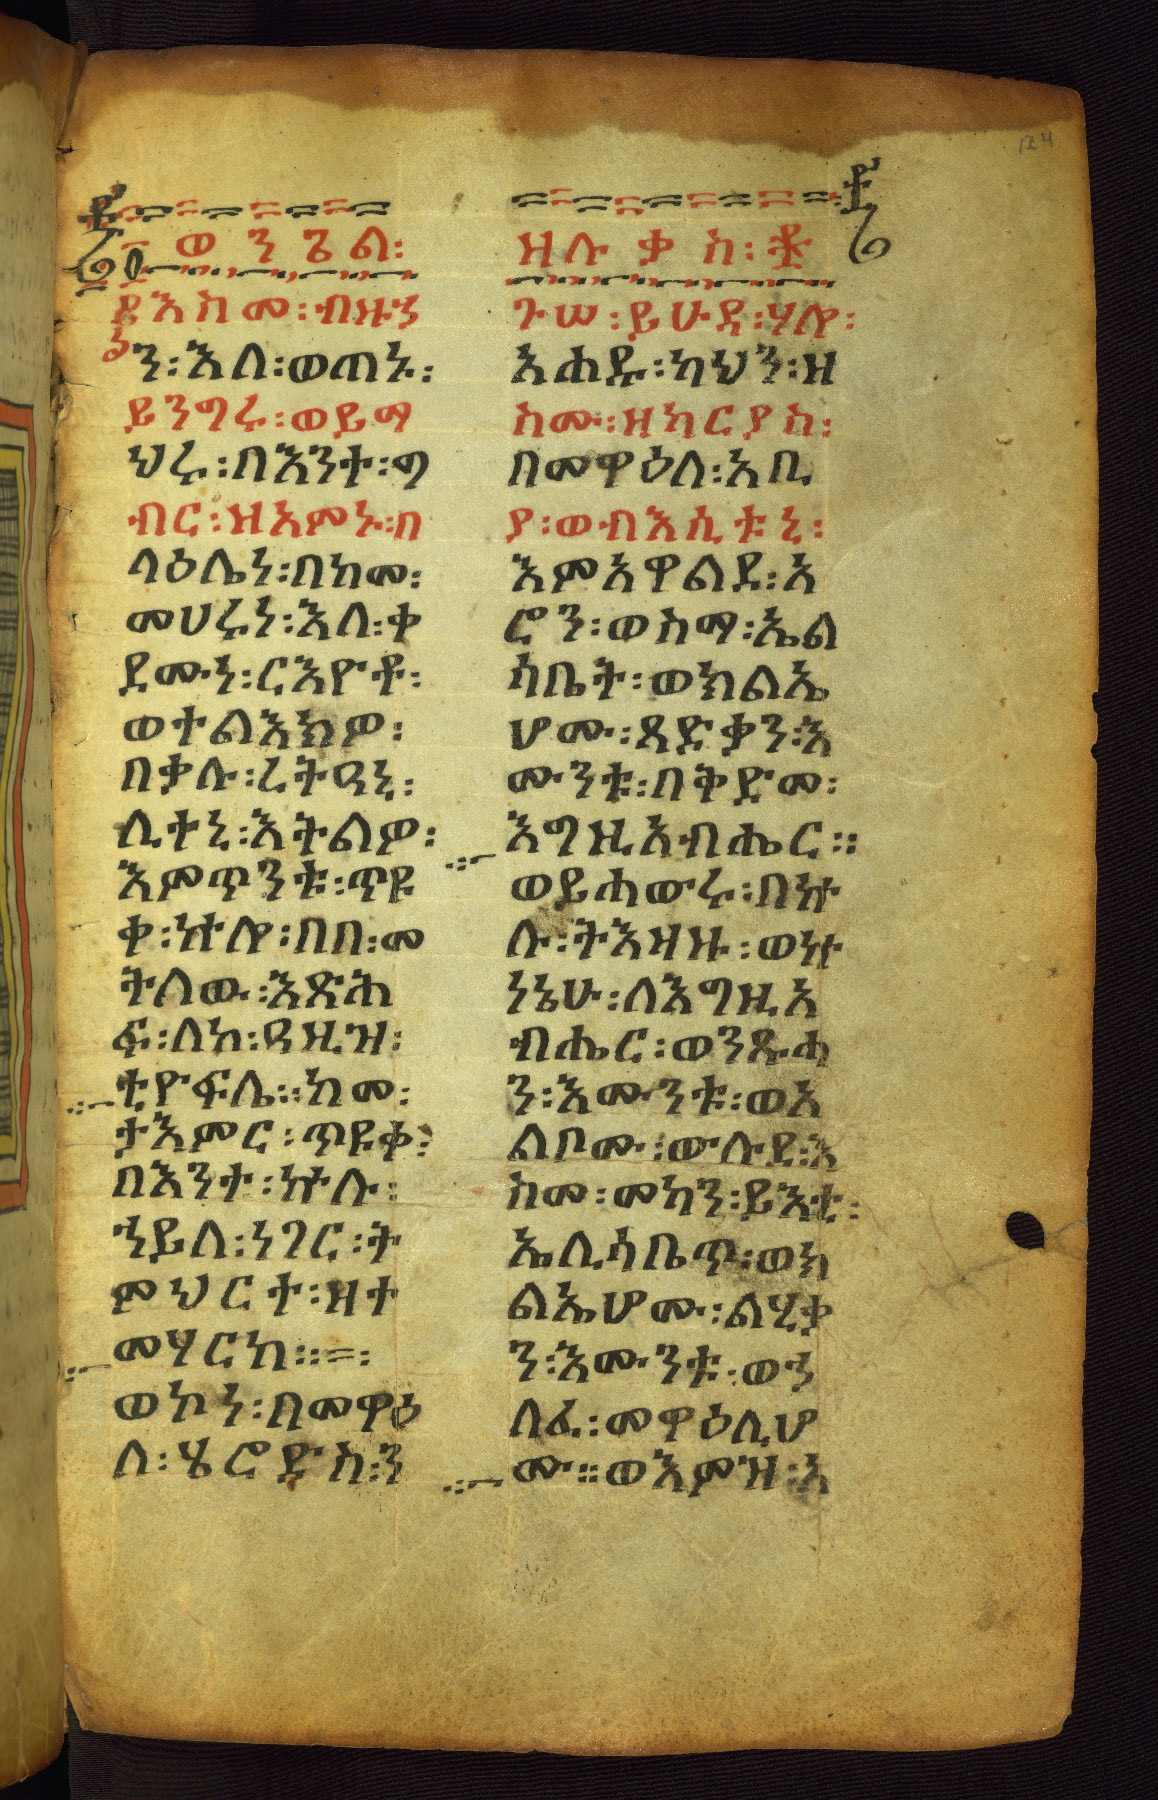 ወንጌል፡
እስመ፡ብዙኃ
ን፡እለ፡ወጠኑ፡
ይንግሩ፡ወይማ
ህሩ፡በእንተ፡ግ
ብር፡ዝአምኑ፡በ
ላዕሌነ፡በከመ፡
መሀሩነ፡እለ፡ቀ
ደሙነ፡ርእዮቶ፡
ወተልእክዎ፡
በቃሉ፡ረትዓኒ፡
ሊተኒ፡እትልዎ፡
እምጥንቱ፡ጥዩ
ቀ፡ኵሎ፡በበ፡መ
ትለው፡እጽሕ
ፍ፡ለከ፡ዓዚዝ፡
ቲዮፍሌ፡፡ከመ፡
ታእምር፡ጥዩቀ፡
በእንተ፡ኵሉ፡
ኀይለ፡ነገር፡ት
ምህርት፡ዘተ
መሃርከ፡፡=፡
ወኮነ፡በመዋዕ
ለ፡ሄሮድስ፡ን
ዘሉቃስ፡
ጉሠ፡ይሁዳ፡ሃሎ፡
አሐዱ፡ካህን፡ዘ
ስሙ፡ዘካርያስ፡
በመዋዕለ፡አቢ
ያ፡ወብእሲቱኒ፡
እምአዋልደ፡አ
ሮን፡ወስማ፡ኤል
ሳቤት፡ወክልኤ
ሆሙ፡ጻድቃን፡እ
ሙንቱ፡በቅድመ፡
እግዚአብሔር፡፡
ወይሐውሩ፡በኵ
ሉ፡ትእዛዙ፡ወኵ
ነኔሁ፡ለእግዚአ
ብሔር፡ወንጹሓ
ን፡እሙንቱ፡ወአ
ልቦሙ፡ውሉደ፡እ
ስመ፡መካን፡ይእቲ፡
ኤሊሳቤጥ፡ወክ
ልኤሆሙ፡ልሂቃ
ን፡እሙንቱ፡ወኃ
ለፈ፡መዋዕሊሆ
ሙ፡፡ወእምዝ፡እ